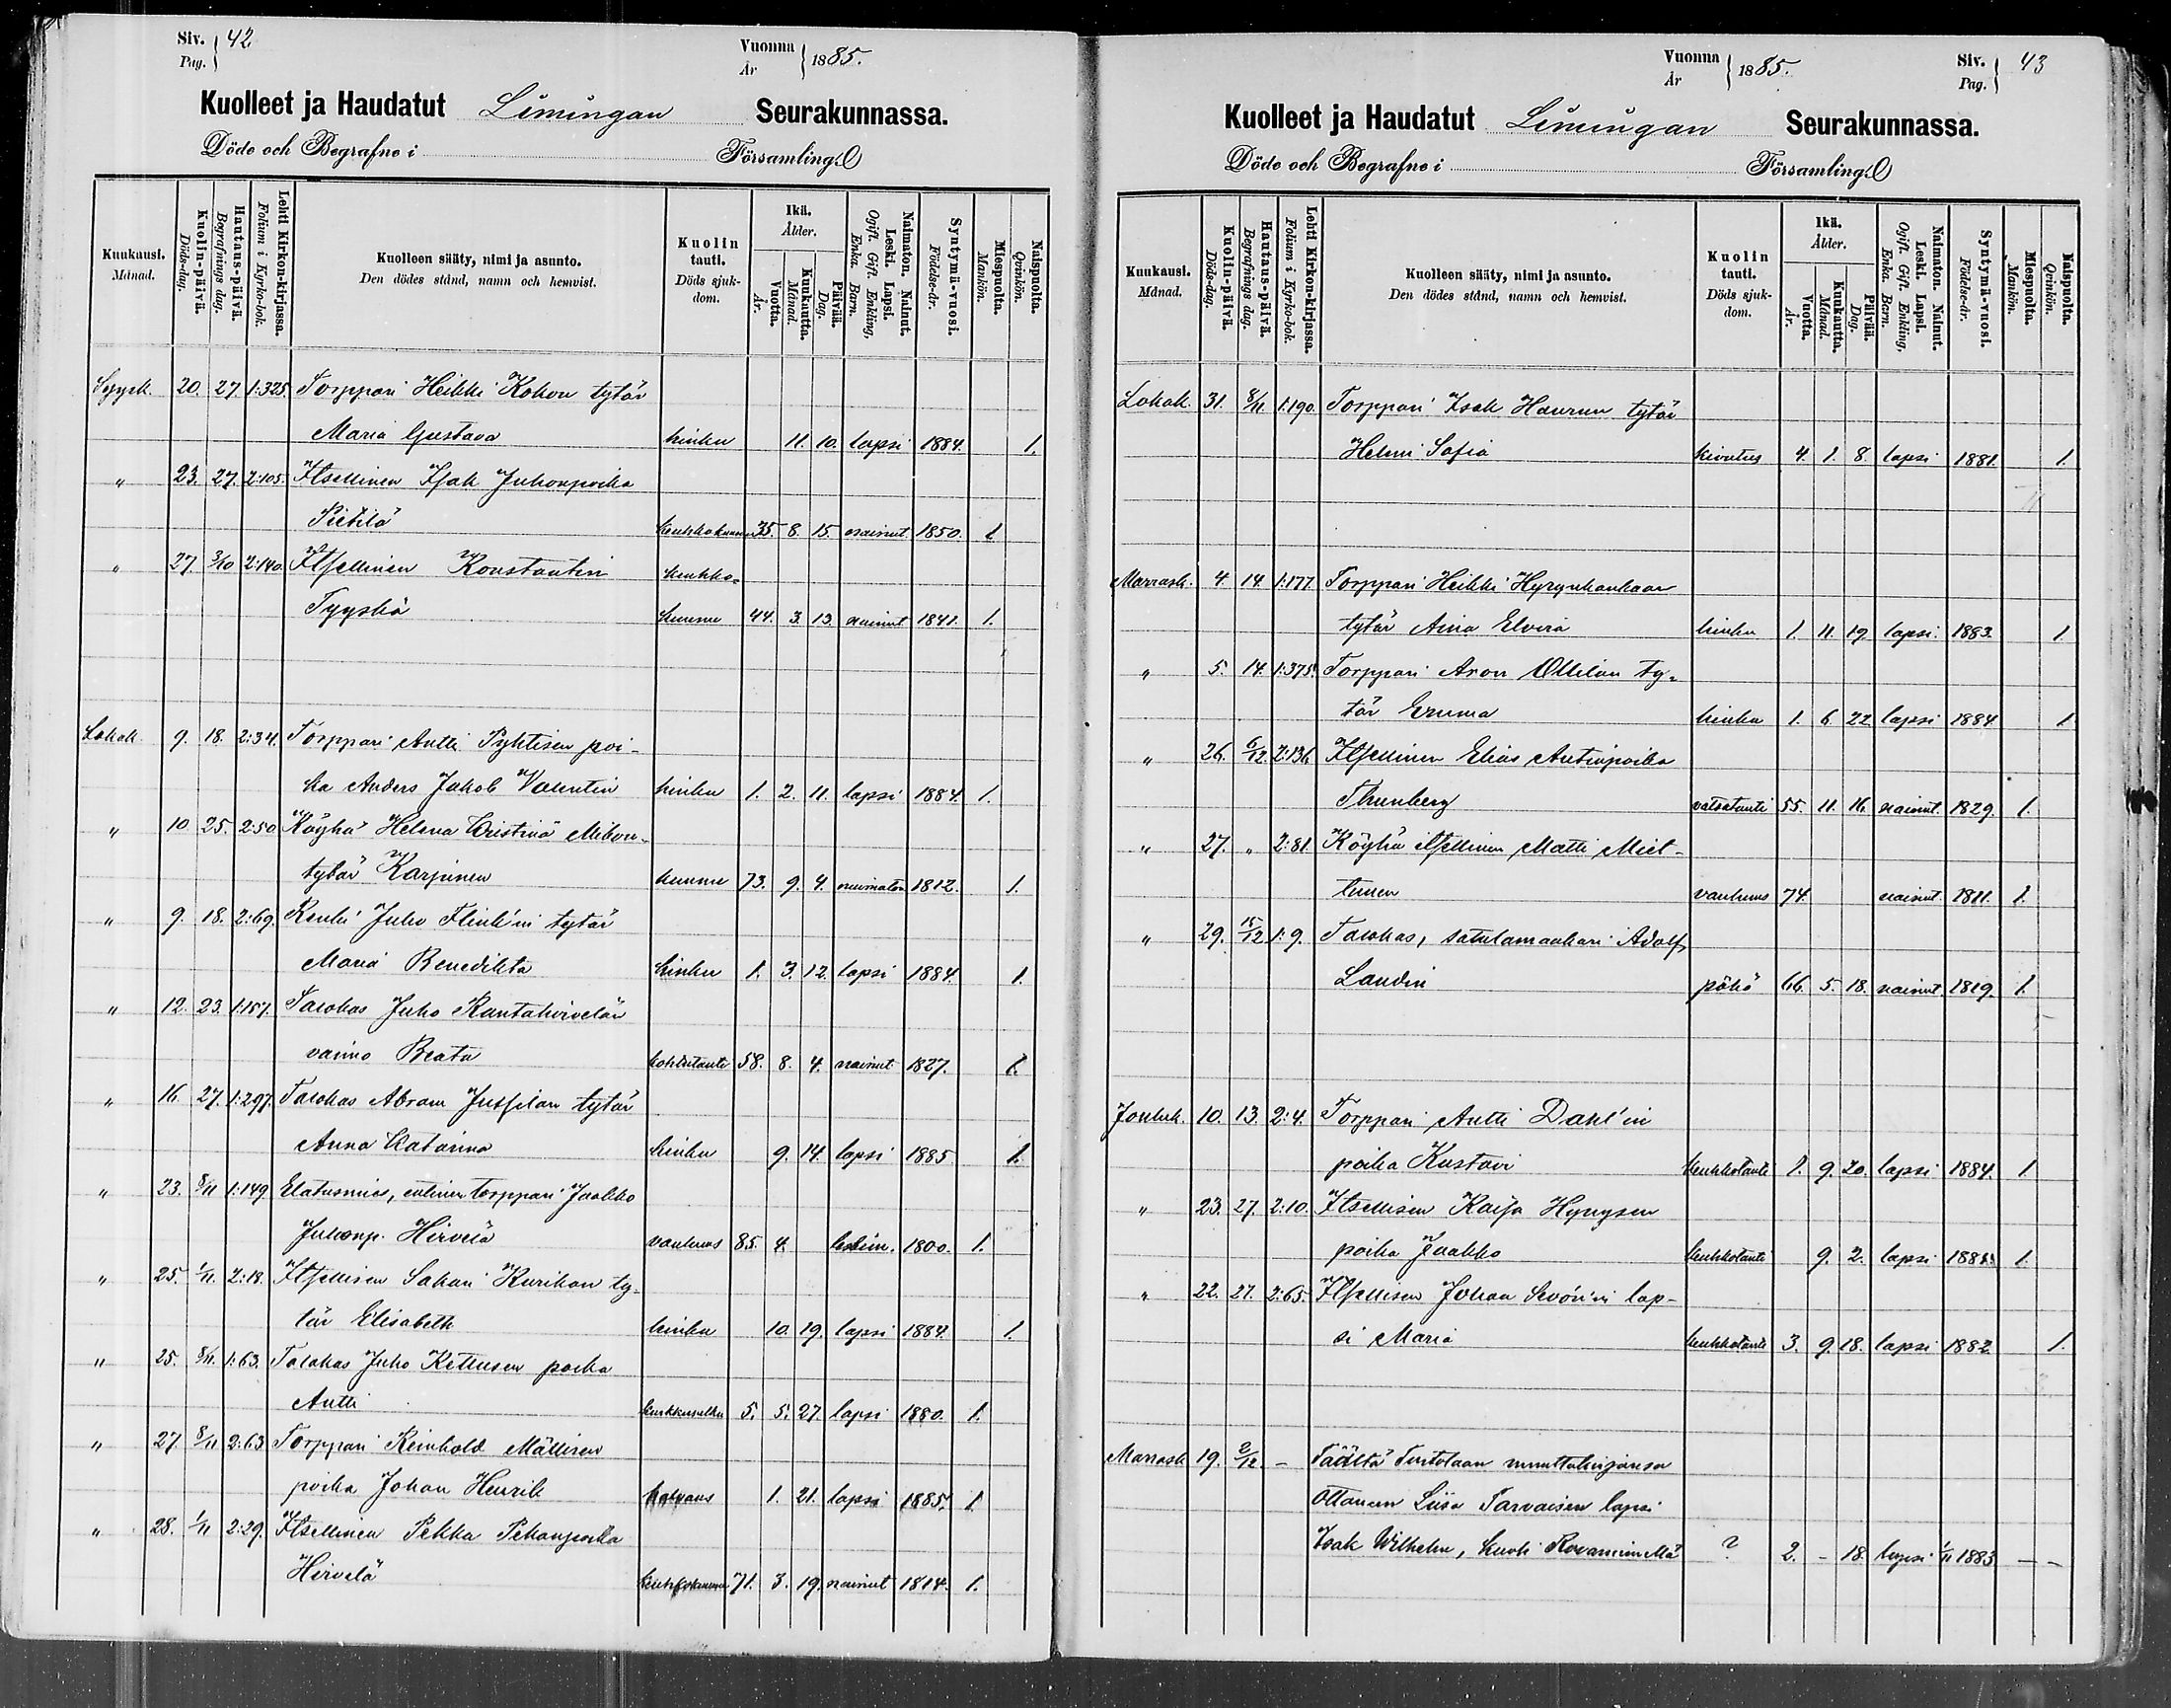 Siv. Pag. 42
Vuonna År 1885.
Kuolleet ja Haudatut Limingan Seurakunnassa.
Döde och Begrafne i Församling.
Kuukausi. Månad.
Kuolin-päivä. Döds-dag.
Hautaus-päivä. Begrafnings dag.
Lehti Kirkon-kirjassa. Folium i Kyrko-bok.
Kuolleen sääty, nimi ja asunto. Den dödes stånd, namn och hemvist.
Kuolin tauti. Döds sjukdom.
Ikä. Ålder.
Vuotta. År.
Kuukautta. Månad.
Päivää. Dag.
Naimaton. Nainut. Leski. Lapsi. Ogift. Gift. Enkling, Enka. Barn.
Syntymä-vuosi. Födelse-år.
Miespuolta. Mankön.
Naispuolta. Qvinkön.
Syysk. 20. 27. 1:325. Torppari Heikki Kokon tytär
Maria Gustava hinku 11. 10. lapsi 1884. 1.
" 23. 27. 2:105. Itsellinen Isak Juhonpoika
Pietilä keuhkokuume 35. 8. 15. nainut. 1850. 1
" 27. 3/10 2:140. Itsellinen Konstantin keuhko-
Tyyskä kuume 44. 3. 13. nainut 1841. 1.
Lokak. 9. 18. 2:34. Torppari Antti Pyhtisen poi-
ka Anders Jakob Valentin hinku 1. 2. 11. lapsi 1884. 1.
" 10 25. 2:50 Köyhä Helena Cristina
tytär Karpinen kuume 73. 9. 4. naimaton 1812. 1.
" 9. 18. 2:69. Renki Juho Flink'in tytär
Maria Benedikta hinku 1. 3. 12. lapsi 1884. 1.
" 12. 23. 1:157. Talokas Juho Rantahirvelän
vaimo Beata kohtutauti 58. 8. 4. nainut 1827. 1.
" 16. 27. 1:297. Talokas Abram Jussilan tytär
Anna Katarina hinku 9. 14. lapsi 1885 1.
" 23. 8/11 1:149 Elatusmies, entinen torppari Jaakko
Juhonp. Hirvelä vanhuus 85. 4. leskim. 1800. 1.
" 25. 1/11. 2:18. Itsellisen Sakari Kurikan ty-
tär Elisabeth hinku 10. 19. lapsi 1884. 1.
" 25. 8/11. 1:63. Talokas Juho Kettusen poika
Antti 5. 5. 27. lapsi 1880. 1.
" 27. 8/11 2:63 Torppari Reinhold Mällisen
poika Johan Henrik 1. 21. lapsi 1885. 1
" 28. 1/11 2:29. Itsellinen Pekka Pekanpoika
Hirvelä keuhkokuume 71. 3. 19. nainut 1814. 1.
Vuonna År 1885.
Siv. Pag. 43
Kuolleet ja Haudatut Limingan Seurakunnassa.
Döde och Begrafne i Församling.
Kuukausi. Månad.
Kuolin-päivä. Döds-dag.
Hautaus-päivä. Begrafnings dag.
Lehti Kirkon-kirjassa. Folium i Kyrko-bok.
Kuolleen sääty, nimi ja asunto. Den dödes stånd, namn och hemvist.
Kuolin tauti. Döds sjukdom.
Ikä. Ålder.
Vuotta. År.
Kuukautta. Månad.
Päivää. Dag.
Naimaton. Nainut. Leski. Lapsi. Ogift. Gift. Enkling, Enka. Barn.
Syntymä-vuosi. Födelse-år.
Miespuolta. Mankön.
Naispuolta. Qvinkön.
Lokak. 31. 8/11. 1:190. Torppari Isak Haurun tytär
Helmi Sofia kivutus 4. 1. 8. lapsi 1881. 1.
Marrask. 4. 14. 1:177. Torppari Heikki Hyrynkankaan
tytär Aina Elvira hinku 1. 11. 19. lapsi. 1883. 1
" 5. 14. 1:375. Torppari Aron Ollilan ty-
tär Emma hinku 1. 6 22. lapsi 1884. 1.
" 26. 6/12. 2:136 Itsellinen Elias Antinpoika
Thunberg vatsatauti 55. 11. 16. nainut. 1829. 1.
" 27. " 2:81. Köyhä itsellinen Matti Miet-
tunen vanhuus 74. nainut. 1811. 1.
" 29. 15/12 1:9. Talokas, satulamaakari Adolf
Landin pöhö 66. 5. 18. nainut. 1819. 1.
Jouluk. 10. 13. 2:4. Torppari Antti Dahl'in
poika Kustavi keuhkotauti 1. 9. 20. lapsi 1884. 1.
" 23. 27. 2:10. Itsellisen Kaisa Hynysen
poika Jaakko keuhkotauti 9. 2. lapsi 1885. 1.
" 22. 27. 2:65. Itsellisen Johan Sevón'in lap-
si Maria keuhkotauti 3. 9. 18. lapsi 1882. 1.
Marrask. 19. 2/12. - Täältä Turtolaan muuttokirjansa
ottaneen Liisa Tarvaisen lapsi
Isak Wilhelm, kuoli Rovaniemellä ? 2. - 18. lapsi 1/11 1883 - -